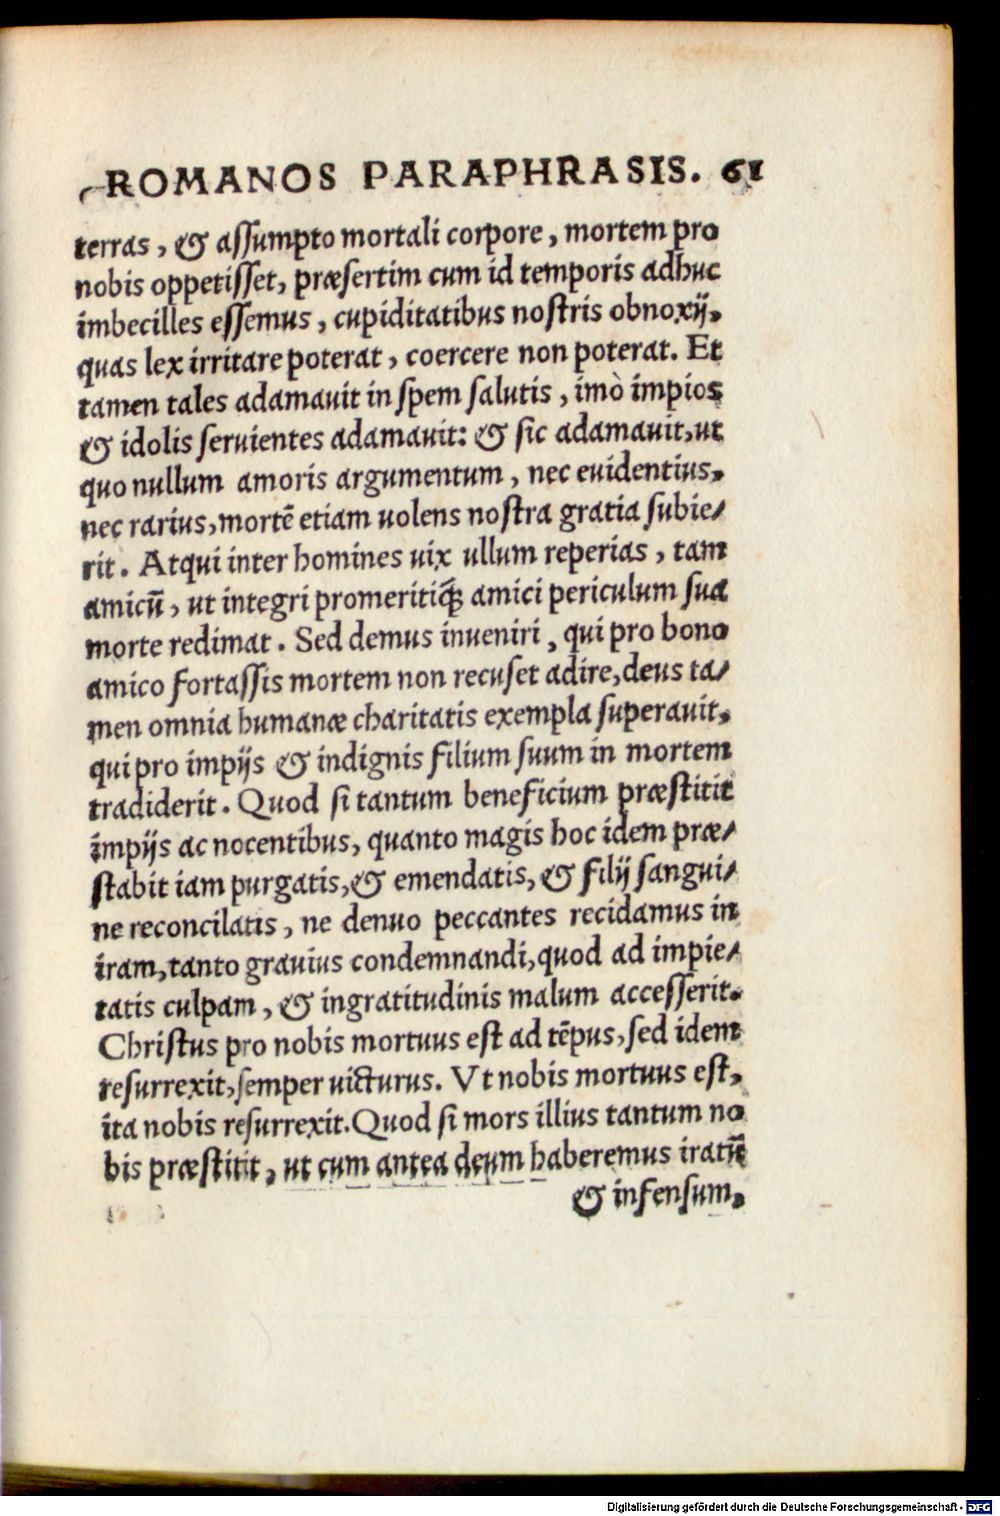 ROMANOS PARAPHRASIS. 61
terras, & assumpto mortali corpore, mortem pro
nobis oppetisset, præsertim cum id temporis adhuc
imbecilles essemus, cupiditatibus nostris obnoxij,
quas lex irritare poterat, coercere non poterat. Et
tamen tales adamauit in spem salutis, imò impios
& idolis seruientes adamauit: & sic adamauit, ut
quo nullum amoris argumentum, nec euidentius,
nec rarius, mortē etiam uolens nostra gratia subie/
rit. Atqui inter homines uix ullum reperias, tam
amicū, ut integri promeritiq́; amici periculum sua
morte redimat. Sed demus inueniri, qui pro bono
amico fortassis mortem non recuset adire, deus ta/
men omnia humanæ charitatis exempla superauit,
qui pro impijs & indignis filium suum in mortem
tradiderit. Quod si tantum beneficium præstitit
impijs ac nocentibus, quanto magis hoc idem præ/
stabit iam purgatis, & emendatis, & filij sangui/
ne reconcilatis, ne denuo peccantes recidamus in
iram, tanto grauius condemnandi, quod ad impie/
tatis culpam, & ingratitudinis malum accesserit.
Christus pro nobis mortuus est ad tēpus, sed idem
resurrexit, semper uicturus. Vt nobis mortuus est,
ita nobis resurrexit. Quod si mors illius tantum no
bis præstitit, ut cum antea deum haberemus iratū
& infensum,
Digitalisierung gefördert durch die Deutsche Forschungsgemeinschaft - DFG